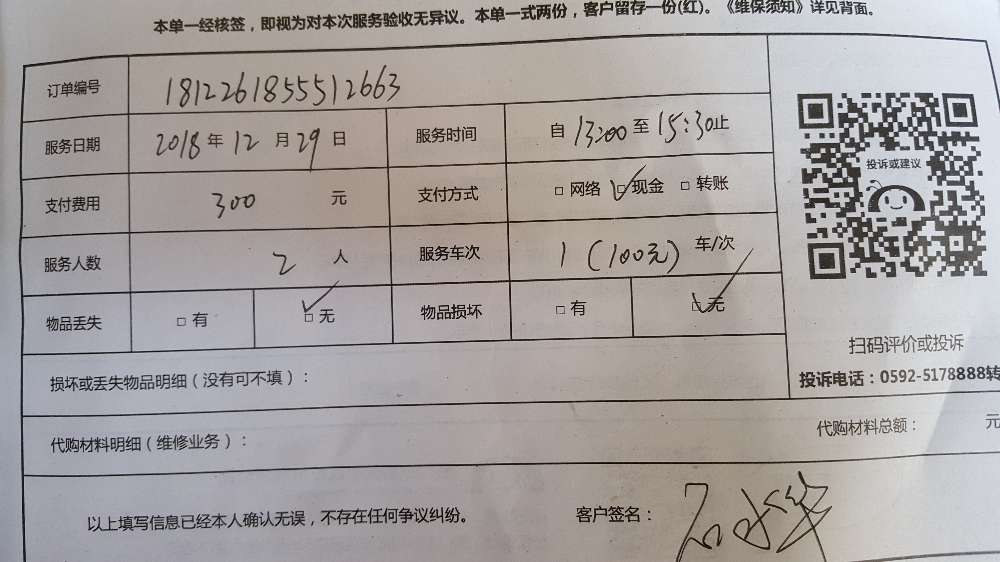 本单一经核签，即视为对本次服务验收无异议。本单一式两份，客户留存一份(红)。《维保须知》详见背面。
订单编号 1812261855512663
服务日期 2018年12月29日 服务时间 自13:00至15:30止
投诉或建议
支付费用 300 元 支付方式 □网络 □现金 □转账
服务人数 2 人 服务车次 1(100元)车/次
物品丢失 □有 □无 物品损坏 □有 □无
扫码评价或投诉
损坏或丢失物品明细（没有可不填）：
投诉电话：0592-5178888转
代购材料明细（维修业务）： 代购材料总额： 元
以上填写信息已经本人确认无误，不存在任何争议纠纷。 客户签名：